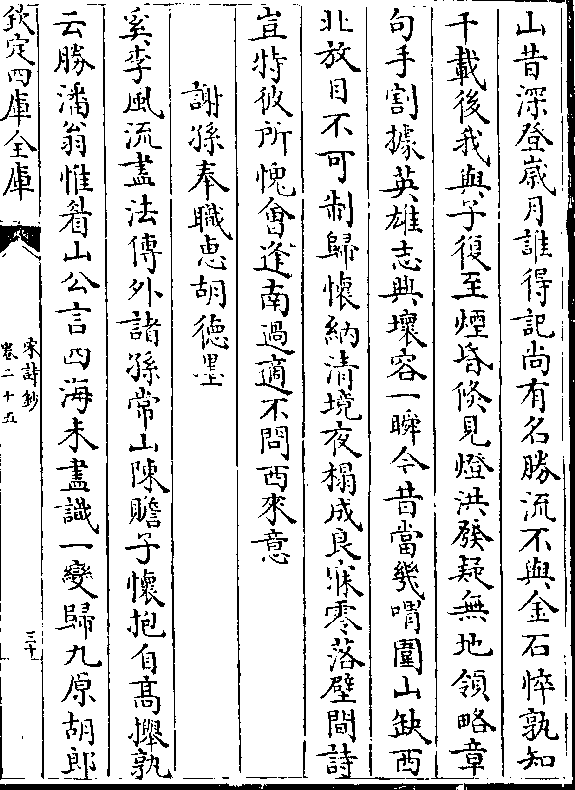 山昔深登嵗月誰得記尚有名勝流不與金石悴孰知
千載後我與子復至煙昏倐見燈洪發疑無地領略章
句手割據英雄志興壞容一瞬今昔當幾喟圍山缺西
北放目不可制歸懐納清境夜榻成良寐零落壁間詩
豈特彼所愧會逢南過適不問西來意
謝孫奉職恵胡徳墨
奚李風流盡法傳外諸孫常山陳贍子懐抱自髙攑孰
云勝潘翁惟着山公言四海未盡識一變歸九原胡郎
欽定四庫全庫
宋詩鈔
卷二十五
三十